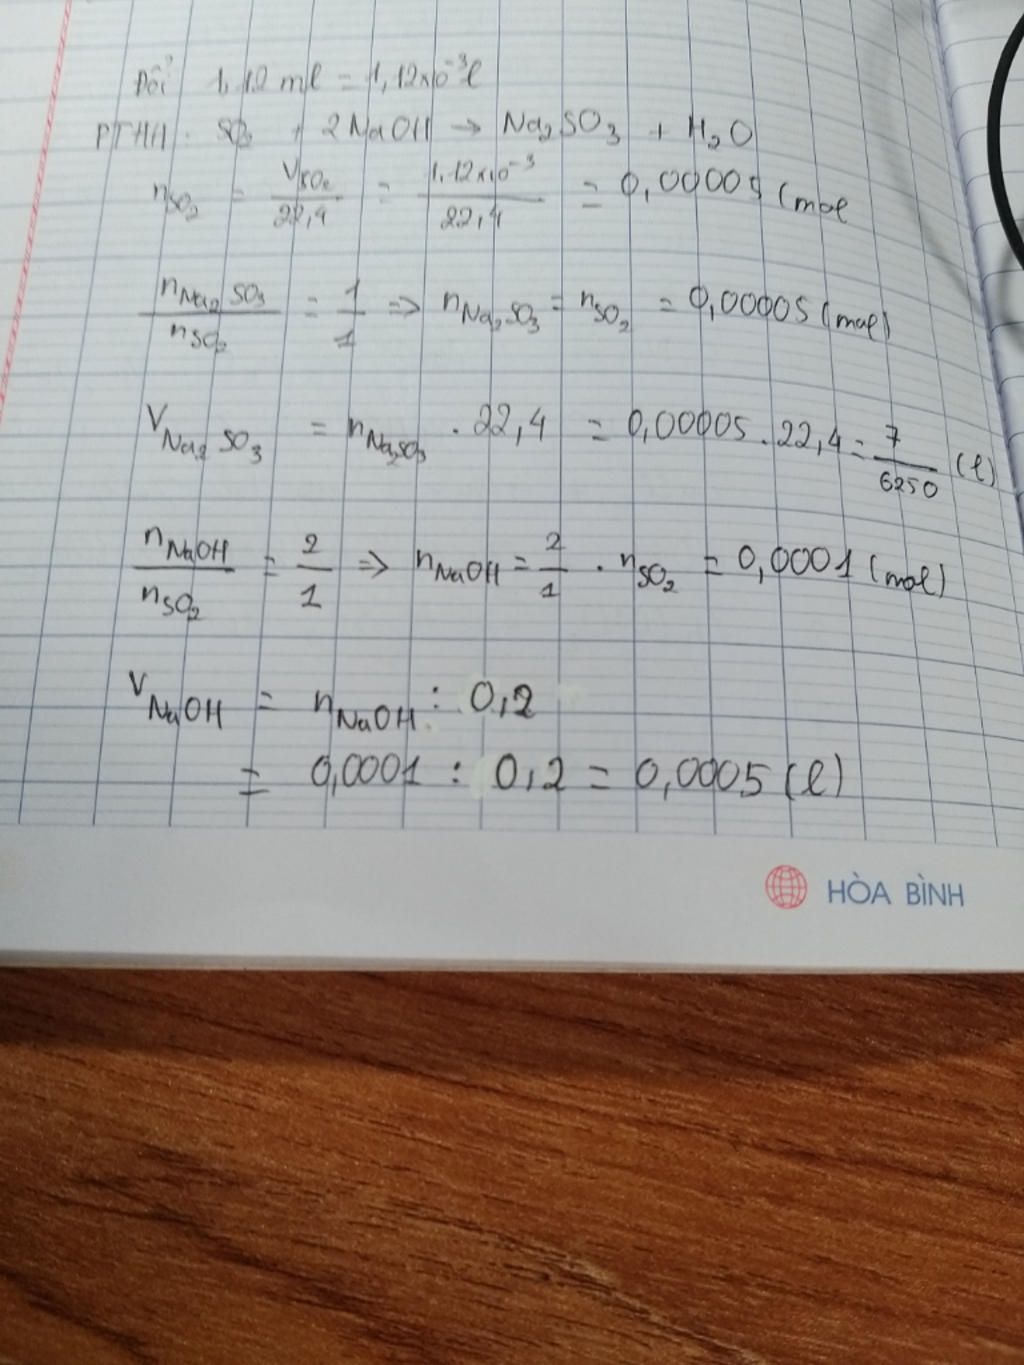 Đổi 1,12 ml = 1,12x10⁻³l
PTHH: SO₂ + 2NaOH → Na₂SO₃ + H₂O
n_SO₂ = V_SO₂ / 22,4 = 1,12x10⁻³ / 22,4 = 0,00005 (mol
n_Na₂SO₃ / n_SO₂ = 1/1 => n_Na₂SO₃ = n_SO₂ = 0,00005 (mol)
V_Na₂SO₃ = n_Na₂SO₃ . 22,4 = 0,00005 . 22,4 = 7/6250 (l)
n_NaOH / n_SO₂ = 2/1 => n_NaOH = 2/1 . n_SO₂ = 0,0001 (mol)
V_NaOH = n_NaOH : 0,2
= 0,0001 : 0,2 = 0,0005 (l)
HÒA BÌNH